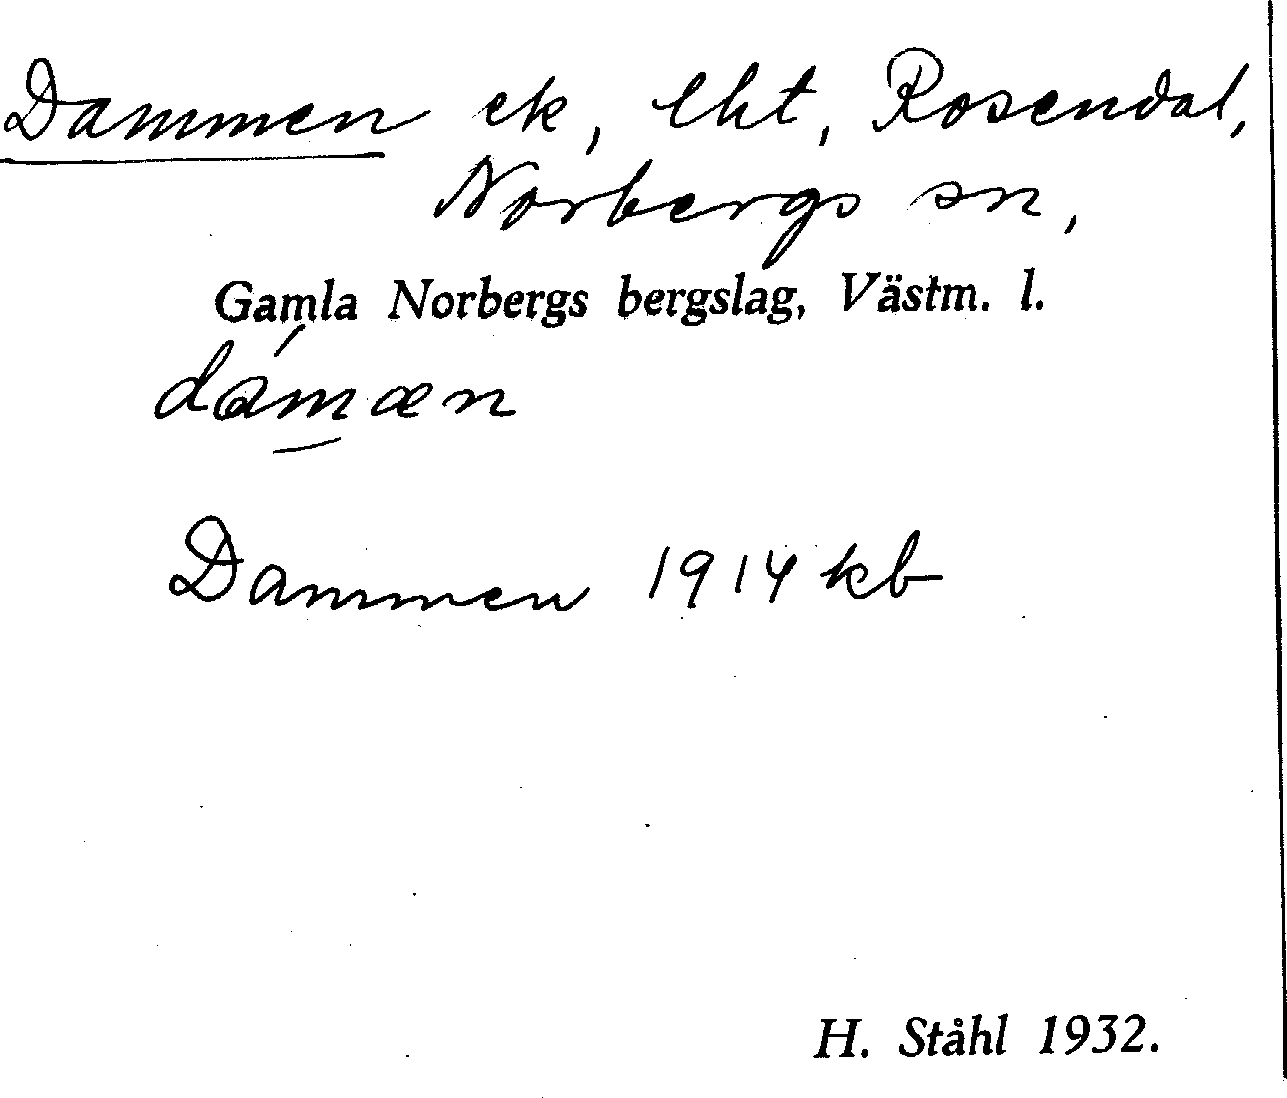 Dammen ek, lht, Rosendal,
Norbergs sn,
Gamla Norbergs bergslag, Västm. l.
dámæn
Dammen 1914 kb
H. Ståhl 1932.